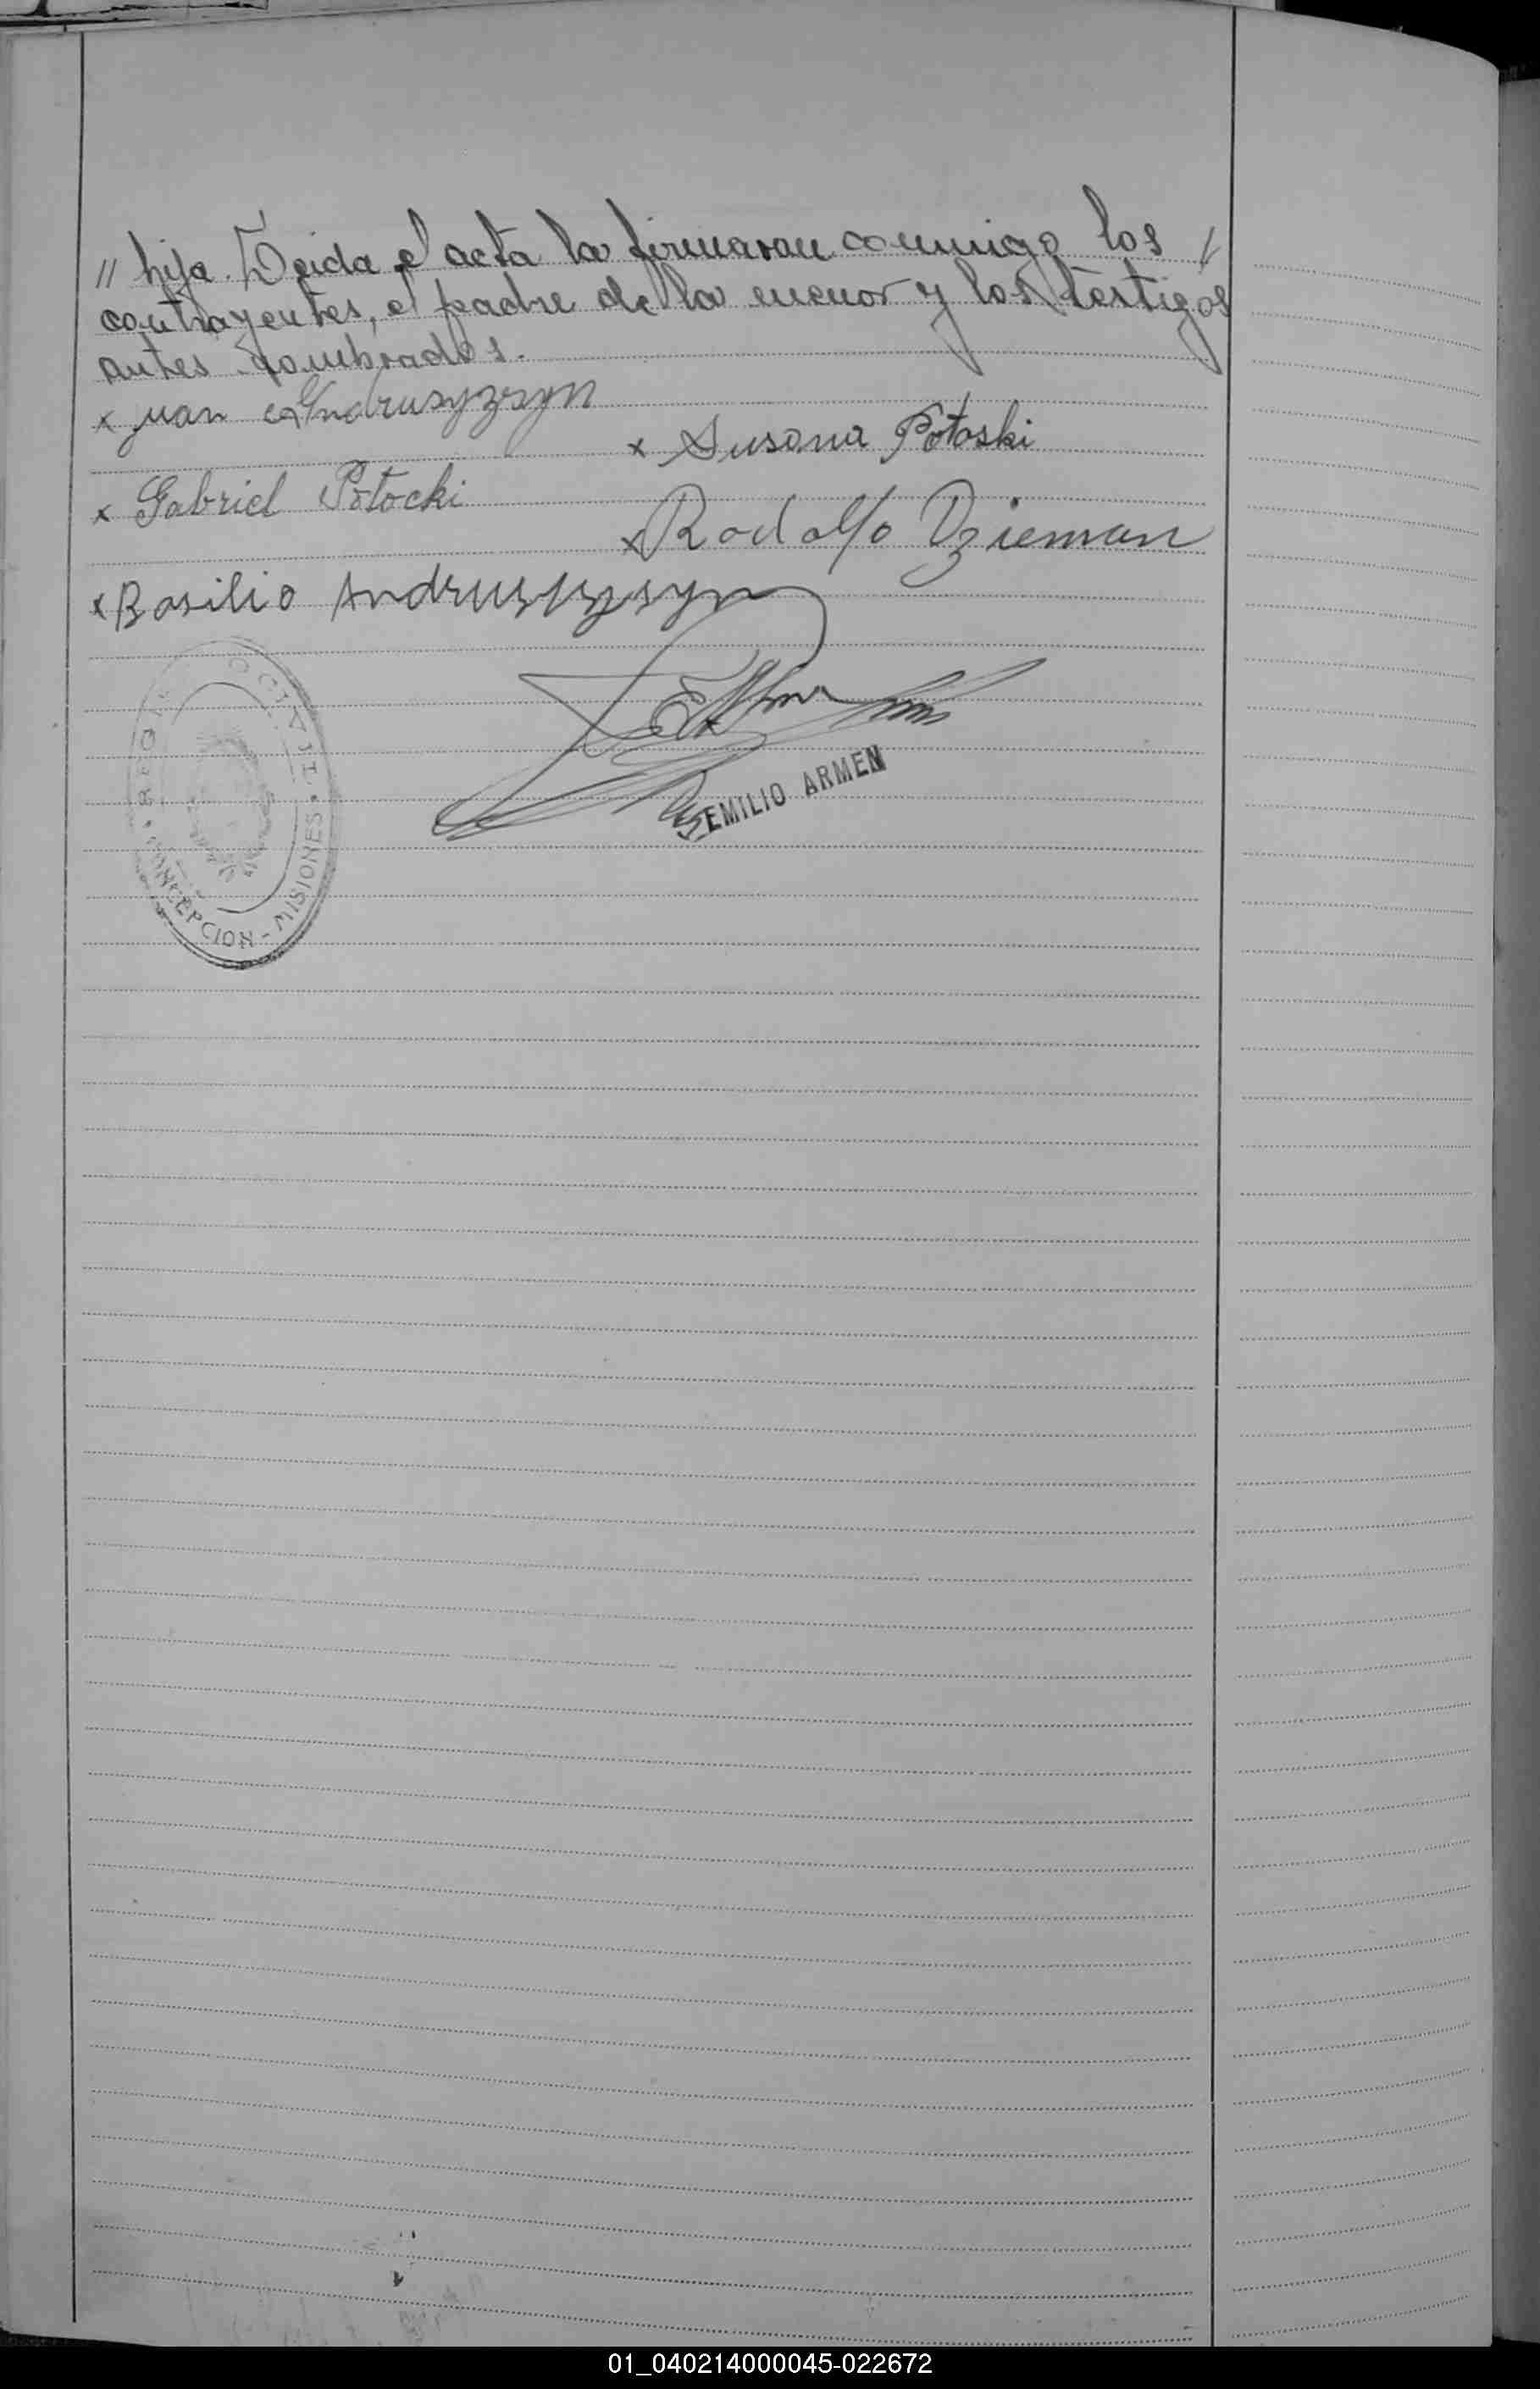 // hija. Leida el acta la firmaron conmigo los
contrayentes, el padre de la menor y los testigos
antes nombrados.
x Juan Andrusyzsyn
x Susana Potoski
x Gabriel Potocki
x Rodolfo Dzieman
x Basilio Andruszyszyn
EMILIO ARMEN
CIVIL • CONCEPCION - MISIONES •
01_040214000045-022672